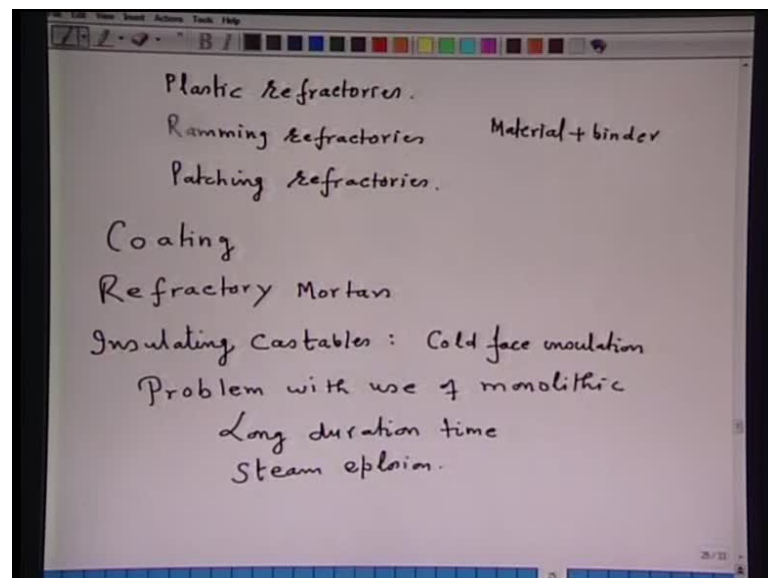 Edit View Insert Actions Tools Help
B I
Plastic refractories.
Ramming refractories Material + binder
Patching refractories.
Coating
Refractory Mortars
Insulating Castables : Cold face insulation
Problem with use of monolithic
Long duration time
Steam eplosion.
25/33